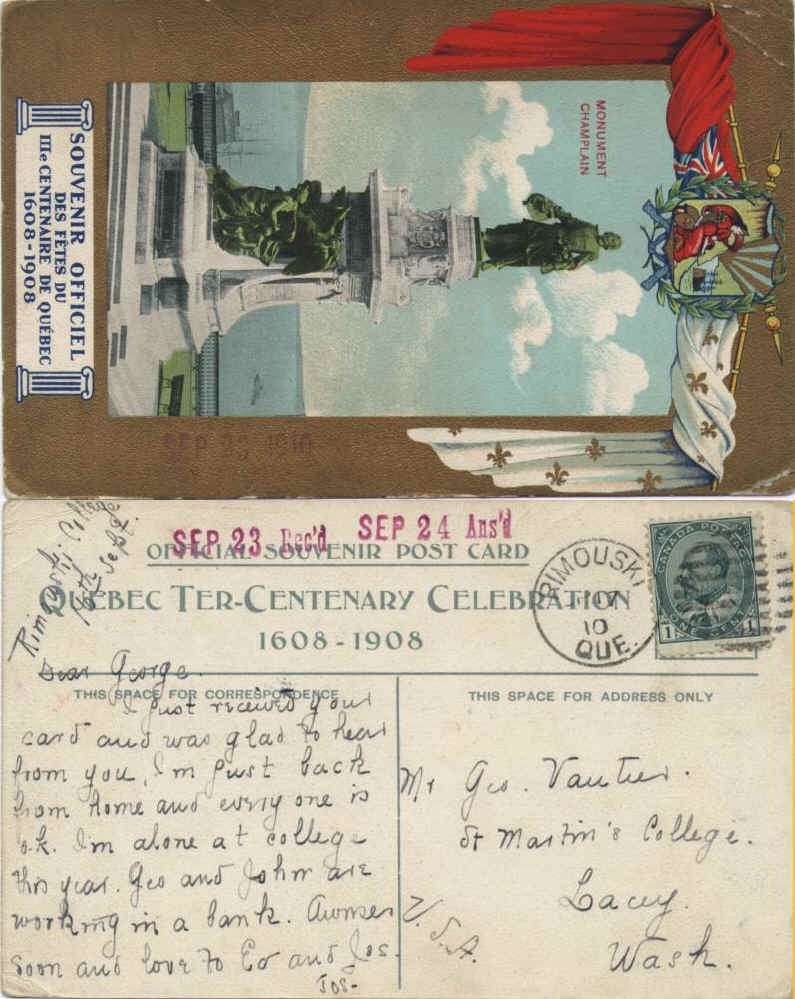 SOUVENIR OFFICIEL
DES FÊTES DU
IIIe CENTENAIRE DE QUÉBEC
1608-1908
MONUMENT
CHAMPLAIN
SEP 23 1910
SEP 23 Rec'd
SEP 24 Ans'd
OFFICIAL SOUVENIR POST CARD
QUEBEC TER-CENTENARY CELEBRATION
1608-1908
RIMOUSKI
17
10
QUE.
CANADA POSTAGE
1 ONE CENT 1
Rimouski College
16th Sept.
Dear George.
THIS SPACE FOR CORRESPONDENCE
I just received your
card and was glad to hear
from you, I'm just back
from home and every one is
o.k. I'm alone at college
this year. Geo and John are
working in a bank. Awnser
soon and love to Ed and Jos.
Jos-
THIS SPACE FOR ADDRESS ONLY
Mr Geo. Vautier.
St Martin's College.
Lacey.
Wash.
U.S.A.